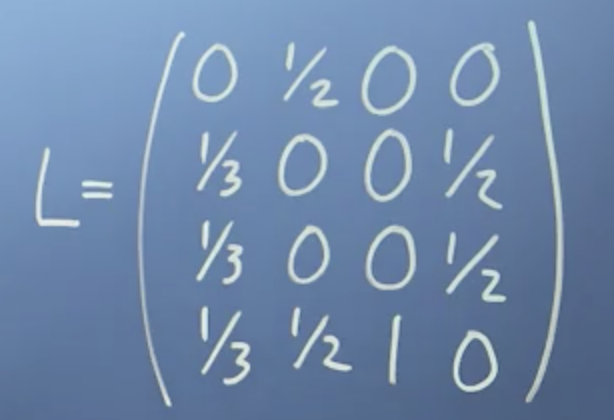 0 1/2 0 0
1/3 0 0 1/2
L=
1/3 0 0 1/2
1/3 1/2 1 0